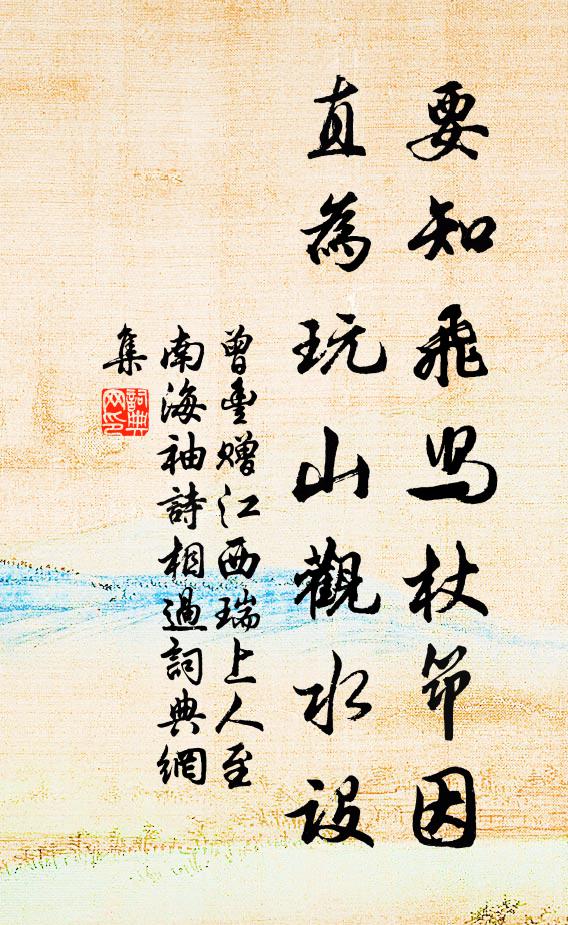 要知飛舄杖節因
直為玩山觀水設
曾豐贈江西瑞上人至
南海袖詩相過詞典網
集
詞典
网印